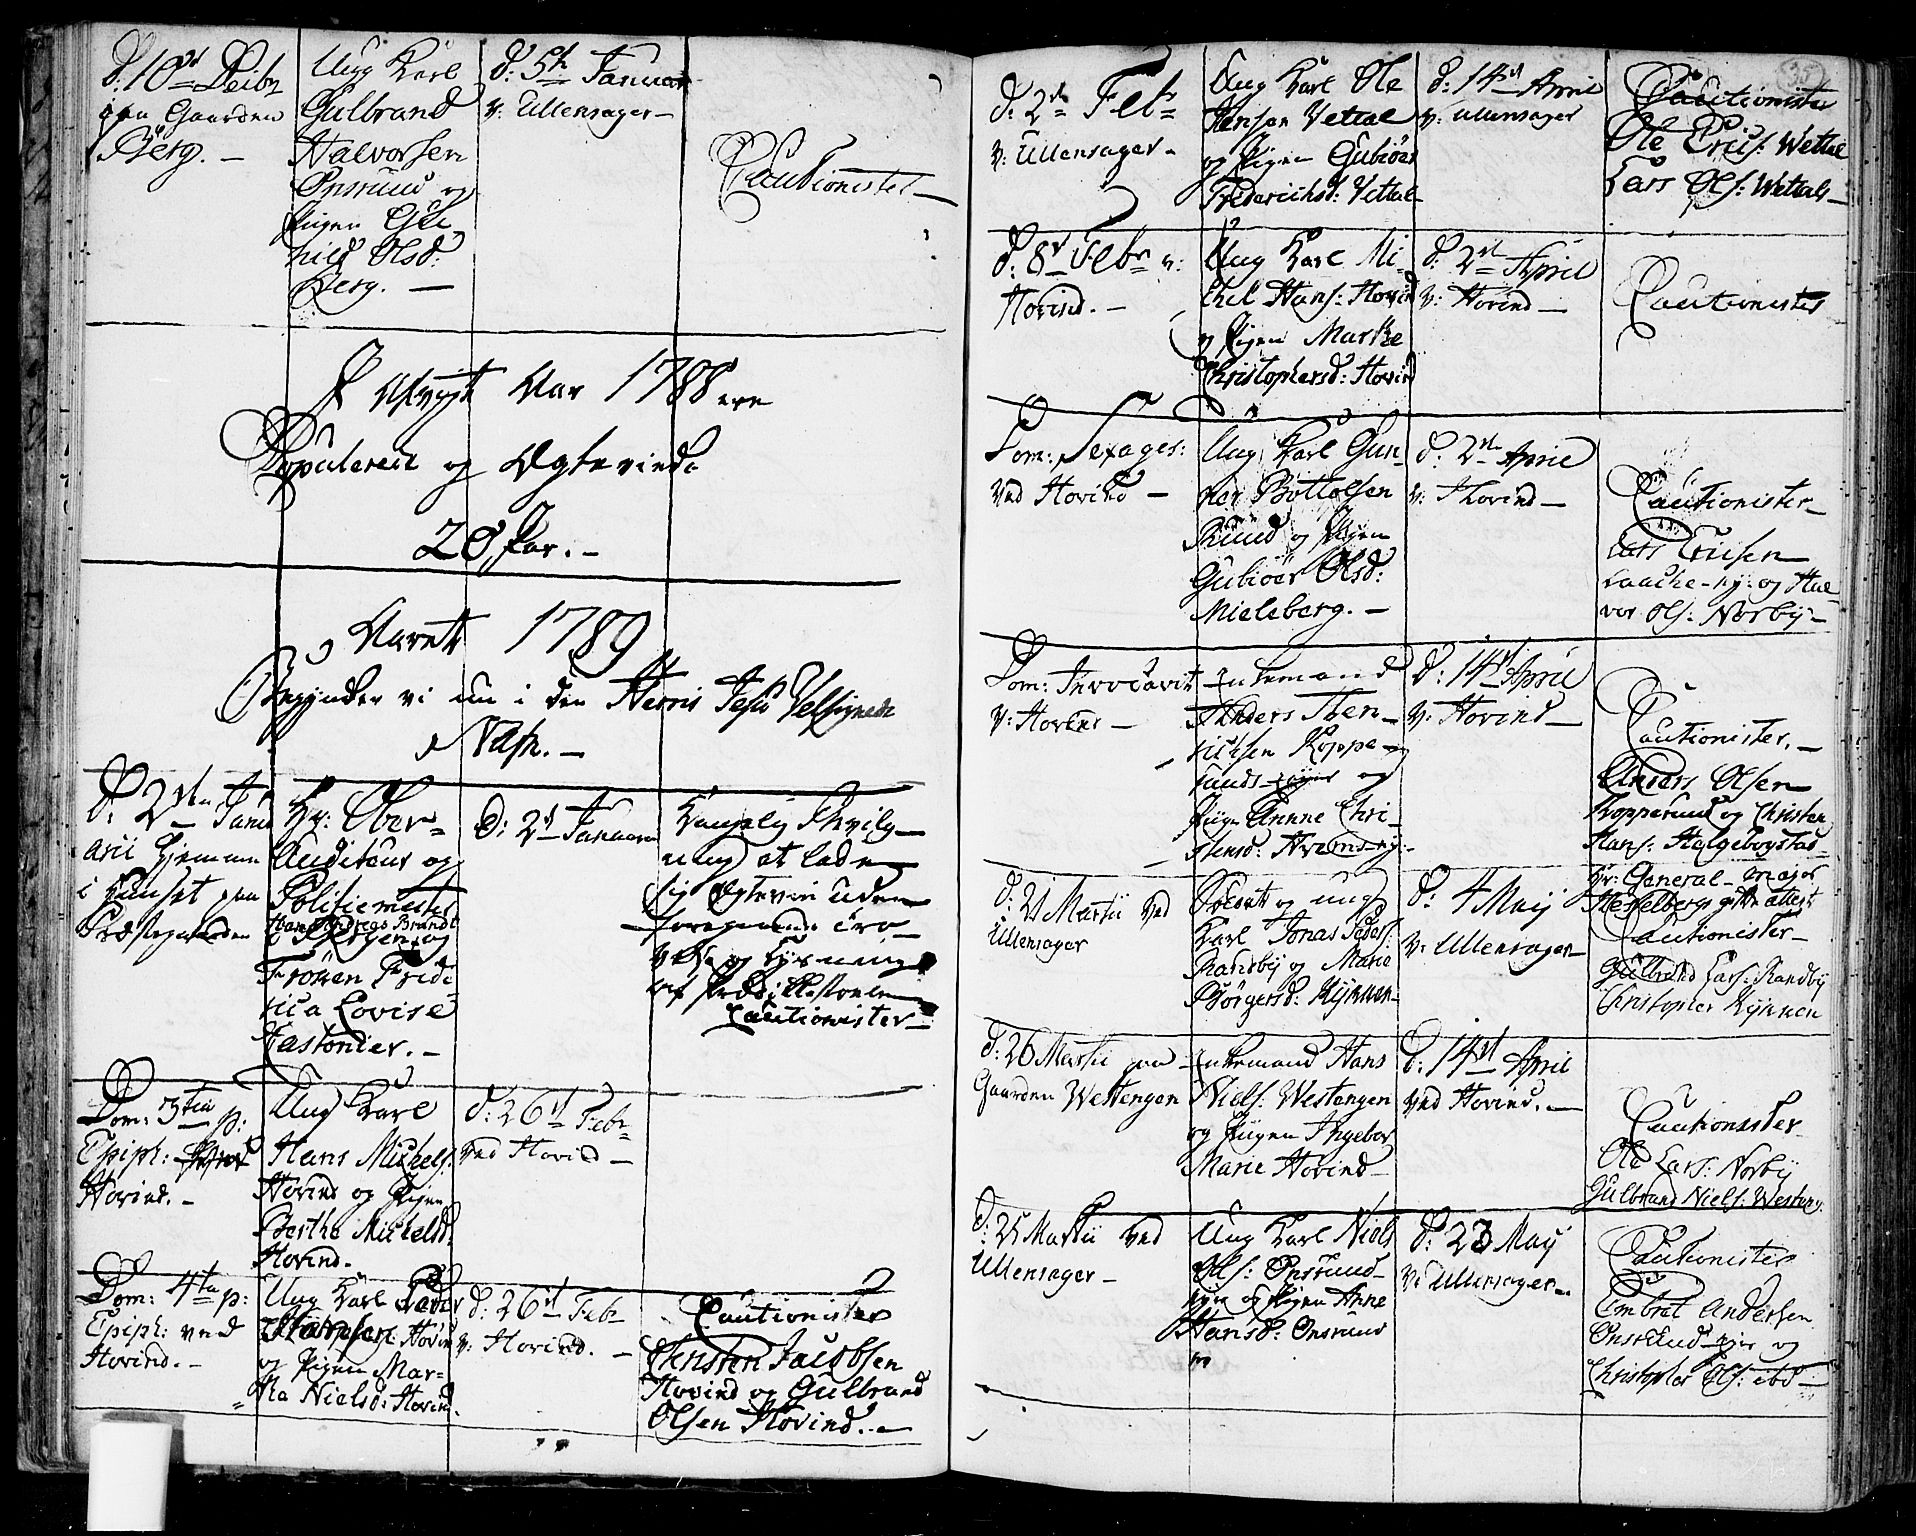 D: 10de Decbr
paa Gaarden
Berg. –
Ung Karl
Gulbrand
Halvorsen
Onsrud og
Pigen Gu-
nild Olsd:
Berg. –
d: 5te Januar
v: Ullensager –
Cautionister –
I Afvigt Aar 1788 ere
Copulerede og Ægteviede
20 Par. –
Aaret 1789
Begynder vi nu i den Herris Jesu Velsignede
Nafn. –
D: 2den Janu
arii hjemme
i Huuset paa
Præstegaarden
Hr: Ober-
Auditeur og
Politiemester
Hans Andreas Brandt
og
Frøken Fride
rica Lovise
Pastonier. –
D: 2d Januarii
Kongelig
at lade
sig Ægtevie uden
foregaaende Tro-
og Lysning
af Prædikestolen
Cautionister –
Dom: 3tia p:
Epiph:
Hovind. –
Ung Karl
Hans Michels:
Hovind og Pigen
Berthe Michelsd:
Hovind. –
d: 26de Febr
ved Hovind –
Dom: 4ta p:
Epiph: ved
Hovind. –
Ung Karl Peder
Hovind
og Pigen Mar-
tha Nielsd: Hovind.
d: 26de Febr
v: Hovind. –
Cautionister
Christen Jacobsen
Hovind og Gulbrand
Olsen Hovind. –
35
d: 2de Febr
v: Ullensager –
Ung Karl Ole
Hansen Vettal
og Pigen Gubiør
Frederichsd: Vettal
d: 14de April
v: Ullensager
Cautionister
Ole Erics: Wettal
Lars Ols: Wettal –
d: 8de Febr v:
Hovind. –
Ung Karl Mi-
chel Hans: Hovind
og Pigen Marthe
Christophersd: Hovind
d: 2de April
v: Hovind –
Cautionister
Dom: Sexages:
ved Hovind –
Ung Karl Gun-
ner Bottolfsen
Ruud og Pigen
Gubiør Olsd:
Mieleberg. –
d: 2de April
v: Hovind –
Cautionister –
Lars Ericsen
Laache-ey: og Hal-
vor Ols: Norby –
Dom: Invocavit
v: Hovind –
Enkemand
Anders Hen-
richsen Koppe-
runds-eyer og
Pigen Anne Chri-
stensd:
d: 14de April
v: Hovind –
Cautionister. –
Anders Olsen
Kopperud og Christen
Hans: Halgebogstad
d: 21 Martii ved
Ullensager
Soldat og ung
Karl Jonas Peders:
Randby og Marie
Børgersd: Kynnen –
d: 4 Maij
v: Ullensager –
Hr: General-Major
Hesselbergs attest
Cautionister –
Gulbrand Lars: Randby
Christopher Kynnen
d: 26 Martii paa
Gaarden Westengen
Enkemand Hans
Niels: Westengen
og Pigen Ingebor
Marie Hovind –
d: 14de April
ved Hovind. –
Cautionister
Ole Lars: Norby
Gulbrand Niels: Westeng
d: 25 Martii ved
Ullensager –
Ung Karl Niels
Ols: Onsrund-
eyer og Pigen Anne
Hansd: Onsrund
d: 23 Maij
v: Ullensager –
Cautionister
Embret Andersen
Onsrund-eyer og
Christopher Ols: ibd –